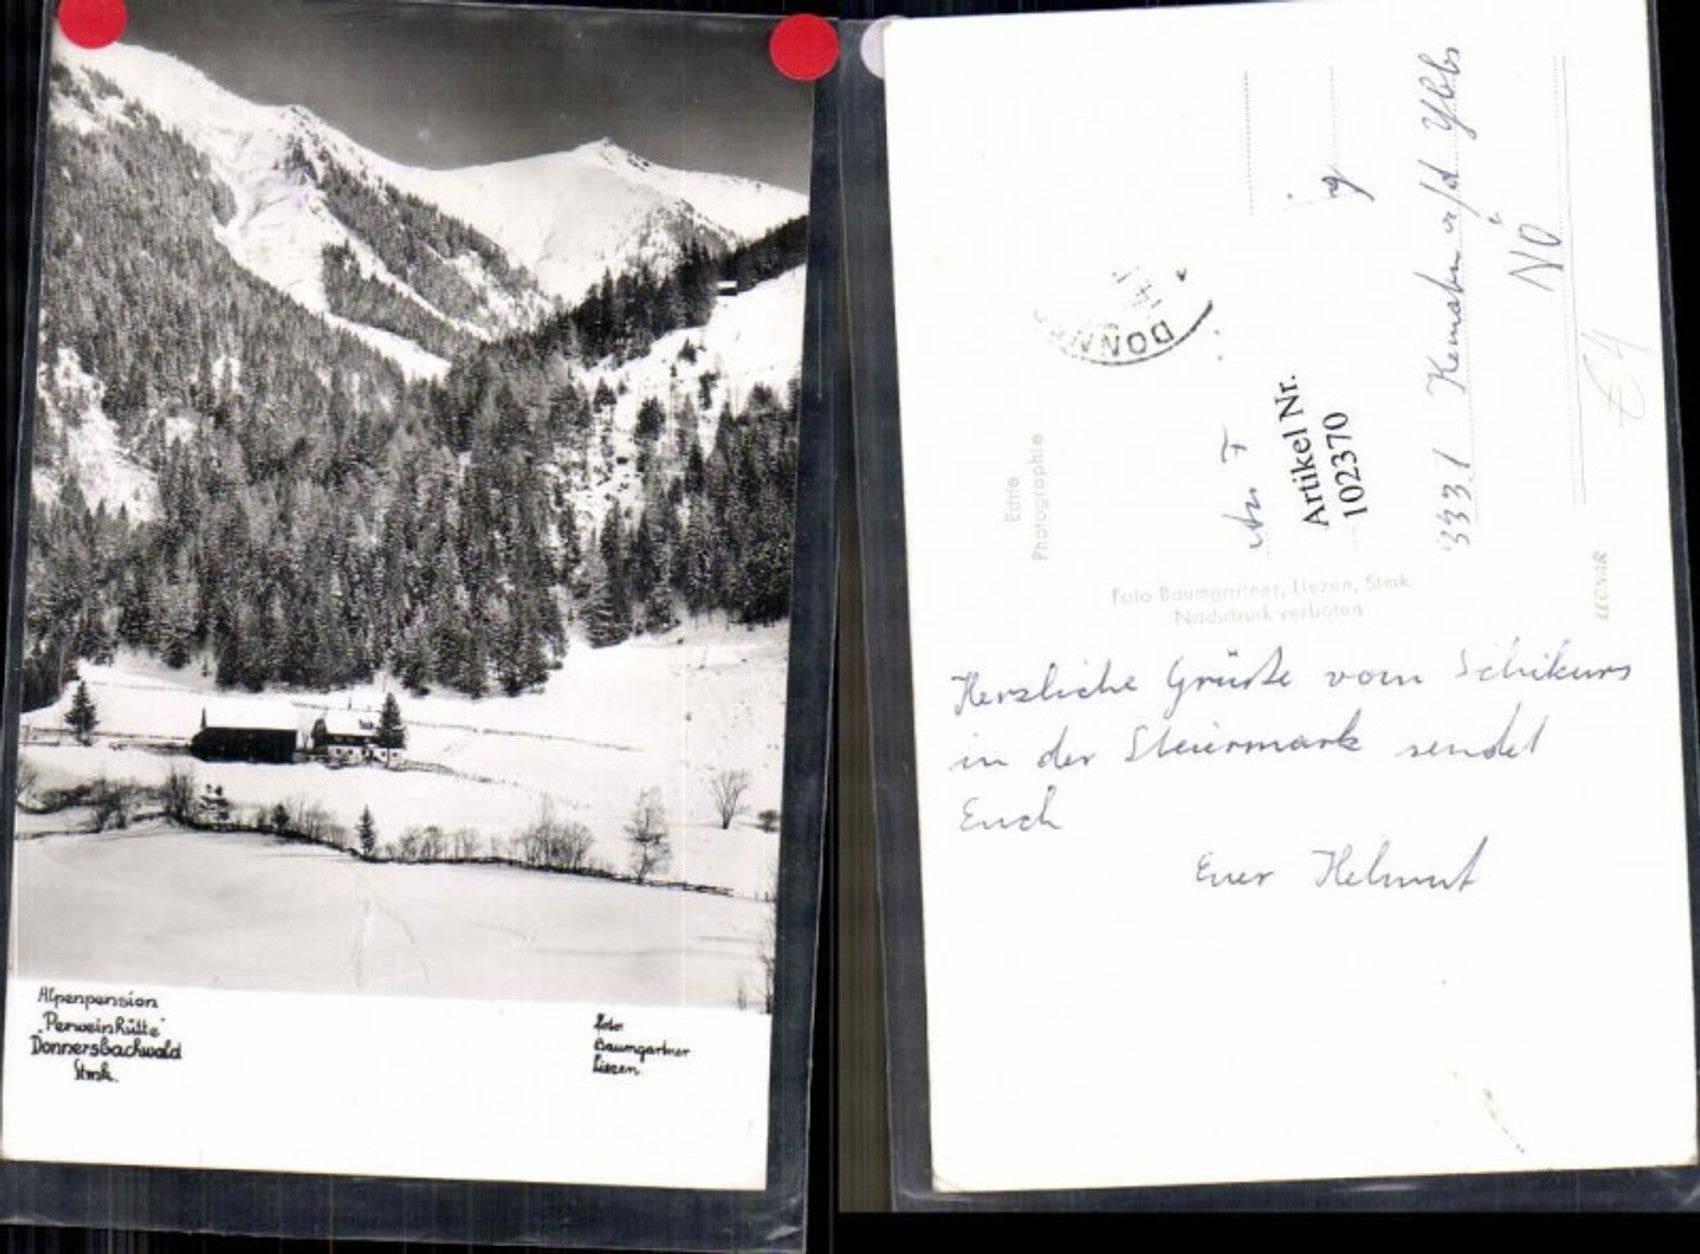 Alpenpension
"Perweinhütte"
Donnersbachwald
Stmk.
Foto
Baumgartner
Liezen
Echte
Photographie
DONN
An F
Artikel Nr.
1022370
3331 Kematen a/d Ybbs
NÖ
€4
Foto Baumgartner, Liezen, Stmk
Nachdruck verboten
LEONAR
Herzliche Grüße vom Schikurs
in der Steiermark sendet
Euch
Euer Helmut